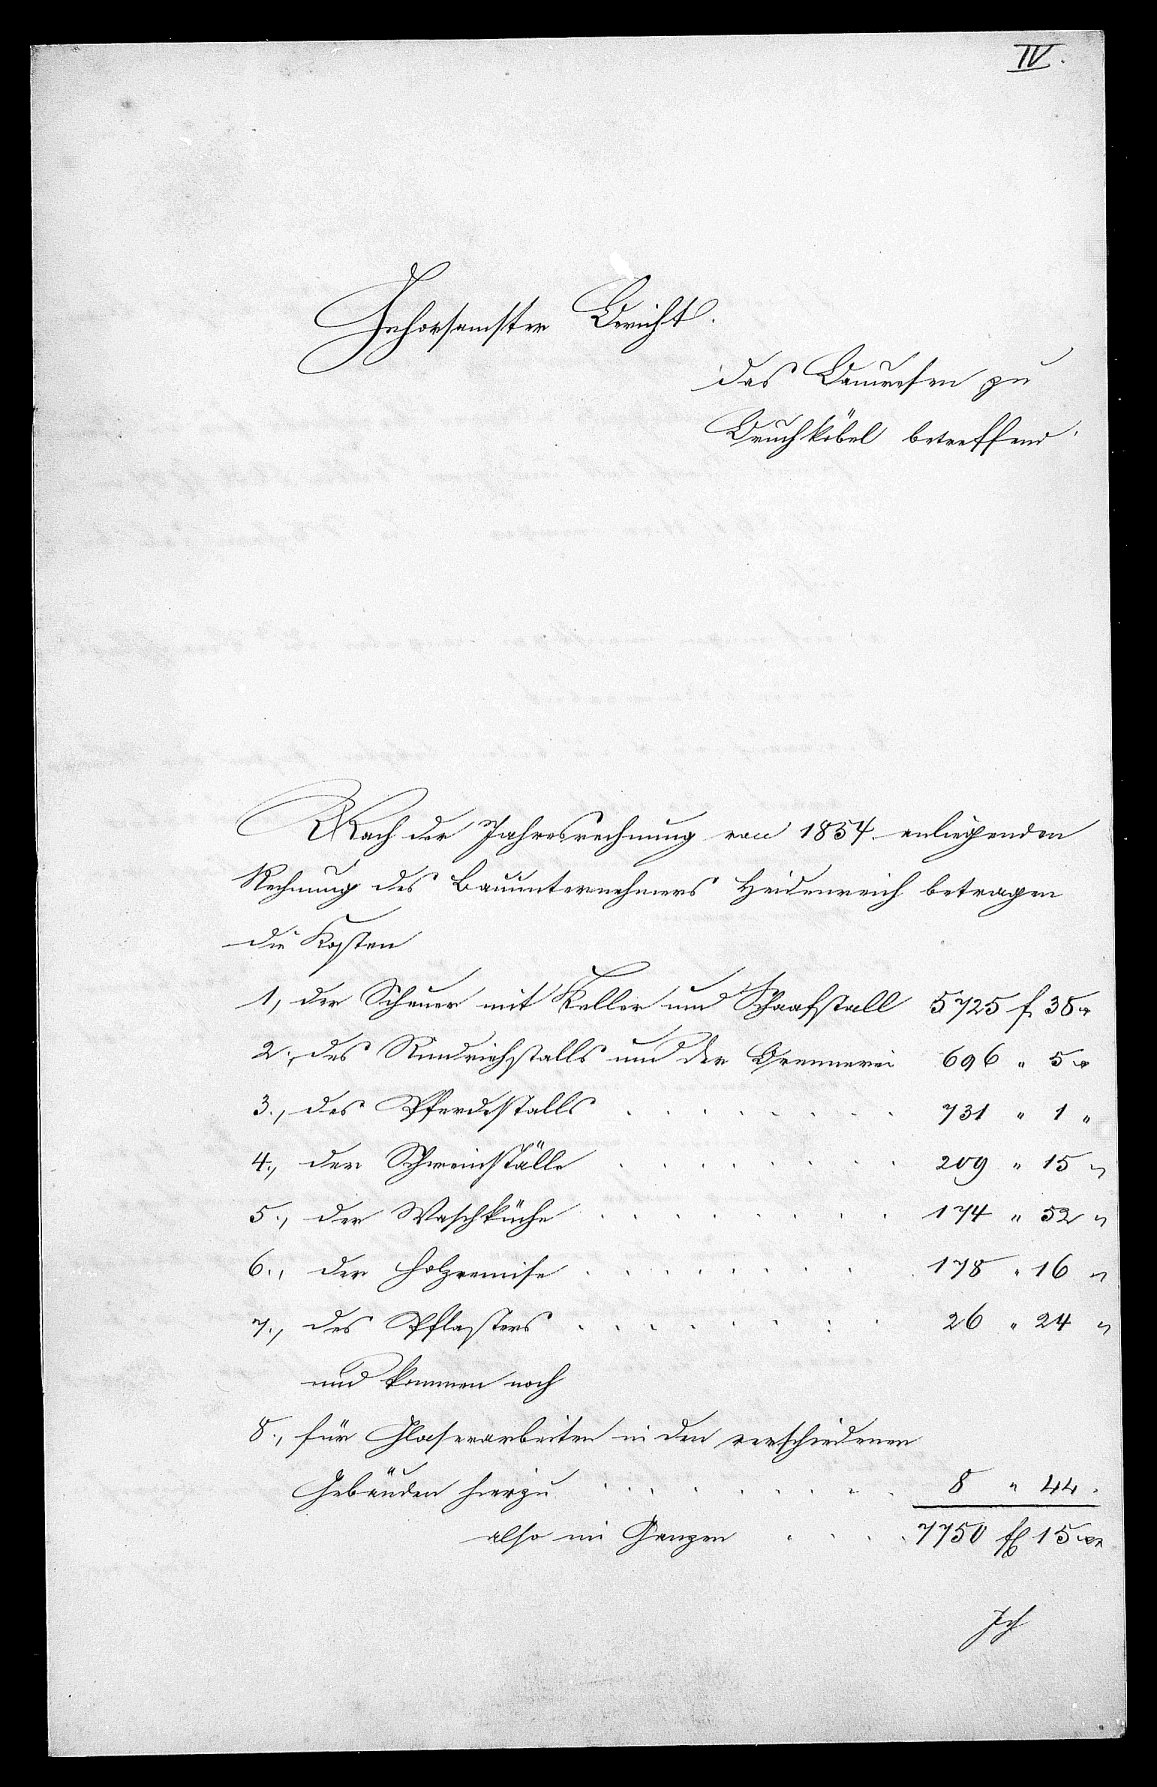 IV.
Gehorsamster Bericht.
das Bauwesen zu
Bruchköbel betreffend.
Nach der Jahresrechnung von 1854 anliegenden
Rechnung des Bauunternehmers Heidenreich betragen
die Kosten
1, der Scheuer mit Keller und Schaafstall 5725 f 38 x
2., des Rindviehstalls und der Brennerei 696 " 5 x
3., des Pferdestalls . . . . . . . . 731 " 1 "
4., der Schweinställe . . . . . . . . 209 " 15 "
5., der Waschküche . . . . . . . . 174 " 52 "
6., der Holzremise . . . . . . . . 178 " 16 "
7., des Pflasters . . . . . . . . 26 " 24 "
und kommen noch
8., für Glaserarbeiten in den verschiedenen
Gebäuden hierzu . . . . . . . . 8 " 44 .
also im Ganzen . . . . 7750 fl 15 xr
Ich